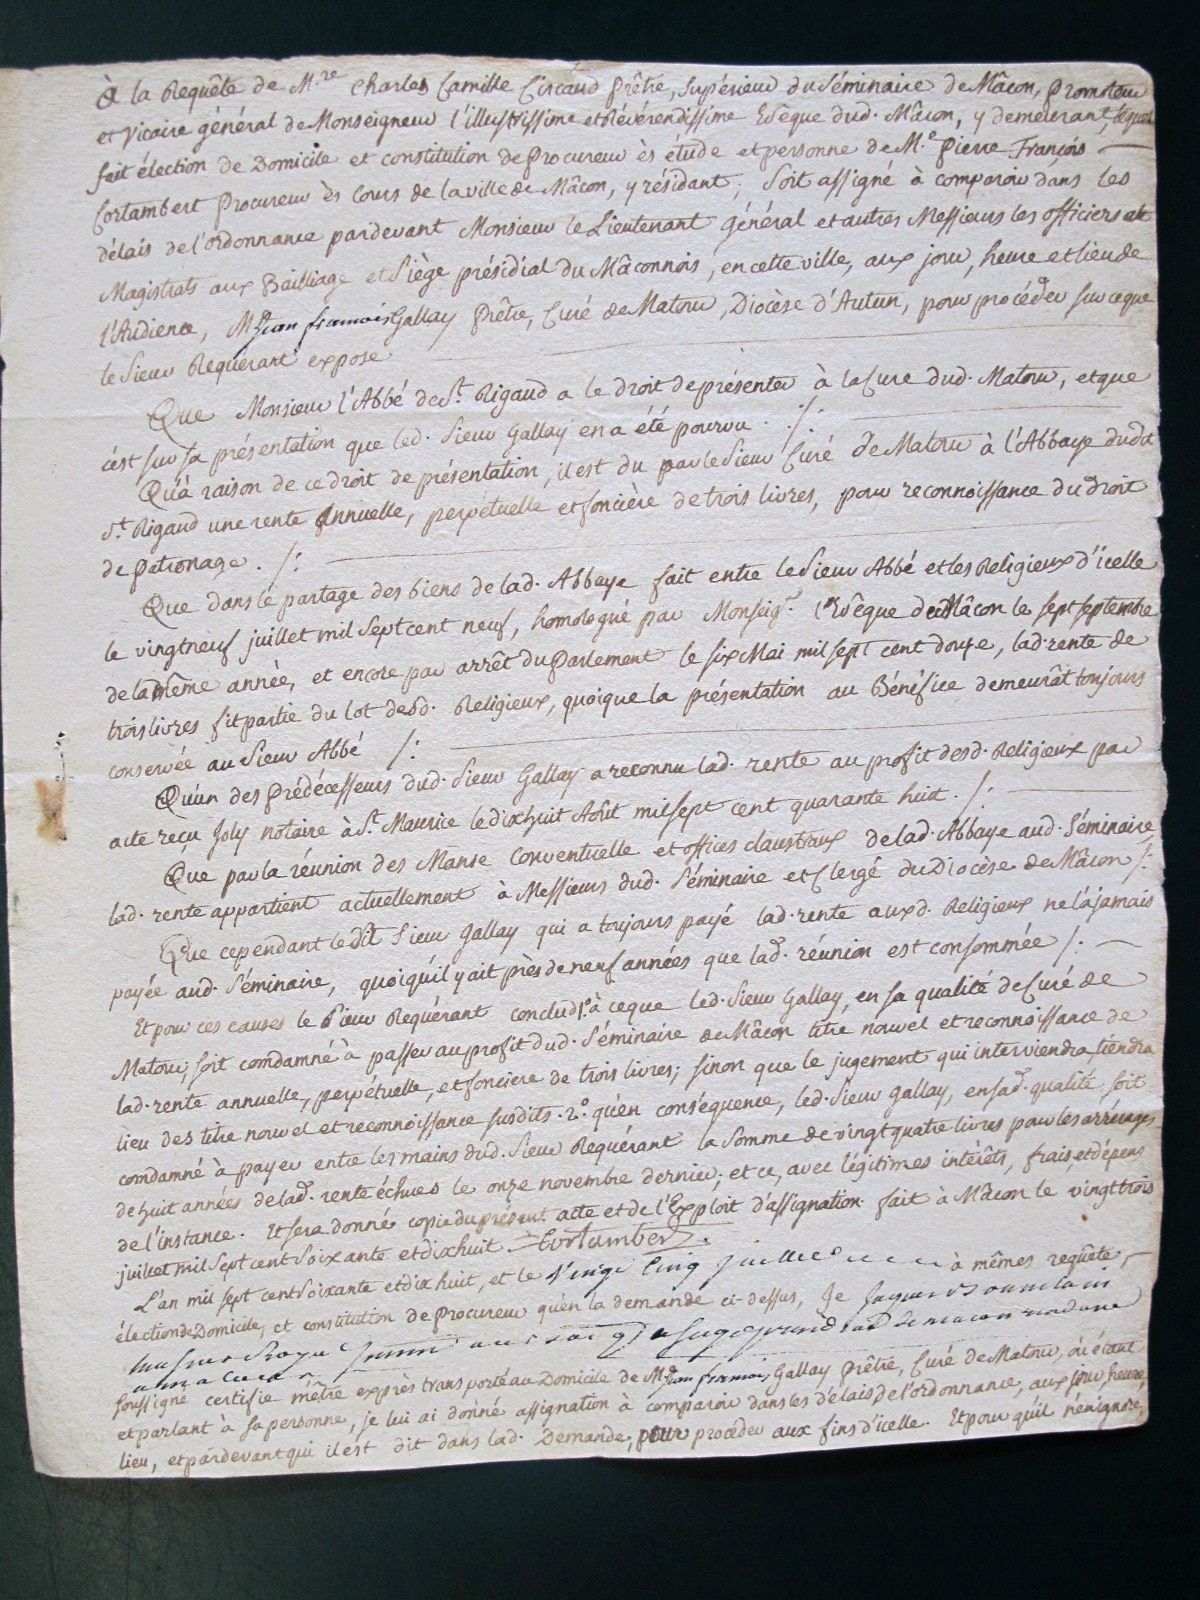 À la Requête de M.re Charles Camille Circaud Prêtre, Supérieur du Séminaire de Mâcon, Promoteur
et Vicaire général de Monseigneur l'illustrissime et Révérendissime Evêque dud. Mâcon, y demeurant, lequel
fait élection de Domicile et constitution de Procureur ès étude et personne de M.e Pierre François
Cortambert Procureur ès Cours de la ville de Mâcon, y résidant; Soit assigné à comparoir dans les
délais de l'ordonnance pardevant Monsieur le Lieutenant Général et autres Messieurs les officiers et
Magistrats aux Bailliage et Siège présidial du Mâconnois, en cette ville, aux jour, heure et lieu de
l'Audience, M.e Jean françois Gallay Prêtre, Curé de Matour, Diocèse d'Autun, pour procéder sur ce que
le Sieur Requérant expose
Que Monsieur l'Abbé de St. Rigaud a le droit de présenter à la Cure dud. Matour, et que
c'est sur sa présentation que led. Sieur Gallay en a été pourvu ./:
Qu'à raison de ce droit de présentation, il est du par le Sieur Curé de Matour à l'Abbaye dudit
St. Rigaud une rente Annuelle, perpétuelle et foncière de trois livres, pour reconnoissance du droit
de patronage. /:
Que dans le partage des biens de lad. Abbaye fait entre le Sieur Abbé et les Religieux d'icelle
le vingtneuf juillet mil Sept cent neuf, homologué par Monseigr. l'Evêque de Mâcon le sept septembre
de la même année, et encore par arrêt du Parlement le six Mai mil sept cent douze, lad. rente de
trois livres fit partie du lot desd. Religieux, quoique la présentation au Bénéfice demeurât toujours
conservée au Sieur Abbé /:
Qu'un des Prédécesseurs dud. Sieur Gallay a reconnu lad. rente au profit desd. Religieux par
acte reçu Joly notaire à St. Maurice le dixhuit Août mil sept cent quarante huit. /:
Que par la réunion des Manse Conventuelle et offices claustraux de lad. Abbaye aud. Séminaire,
lad. rente appartient actuellement à Messieurs dud. Séminaire et Clergé du Diocèse de Mâcon /:
Que cependant le dit Sieur Gallay qui a toujours payé lad. rente auxd. Religieux ne l'a jamais
payée aud. Séminaire, quoiqu'il y ait près de neuf années que lad. réunion est consommée /:
Et pour ces causes le Sieur Requérant conclud 1.o à ce que led. Sieur Gallay, en sa qualité de Curé de
Matour, soit comdamné à passer au profit dud. Séminaire de Mâcon titre nouvel et reconnoissance de
lad. rente annuelle, perpétuelle, et foncière de trois livres; sinon que le jugement qui interviendra, tiendra
lieu des titre nouvel et reconnoissance susdits. 2.o qu'en conséquence, led. Sieur Gallay, en sad. qualité soit
comdamné à payer entre les mains dud. Sieur Requérant la Somme de vingt quatre livres pour les arrérages
de huit années de lad. rente échues le onze novembre dernier; et ce, avec légitimes intérêts, frais, et dépens
de l'instance. Et sera donné copie du présent acte et de l'Exploit d'assignation. fait à Mâcon le vingt trois
juillet mil Sept cent Soixante et dixhuit. Cortambert.
L'an mil sept cent Soixante et dix huit, et le Vingt Cinq Juillet à mêmes requête,
élection de Domicile, et constitution de Procureur qu'en la demande ci-dessus, Je Jaques
soussigné certifie mêtre exprès transporté au Domicile de M.e Jean francois Gallay Prêtre, Curé de Matour, où étant
et parlant à sa personne, je lui ai donné assignation à comparoir dans les délais de l'ordonnance, aux jour, heure,
lieu, et pardevant qui il est dit dans lad. Demande, pour procéder aux fins d'icelle. Et pour qu'il n'en ignore,